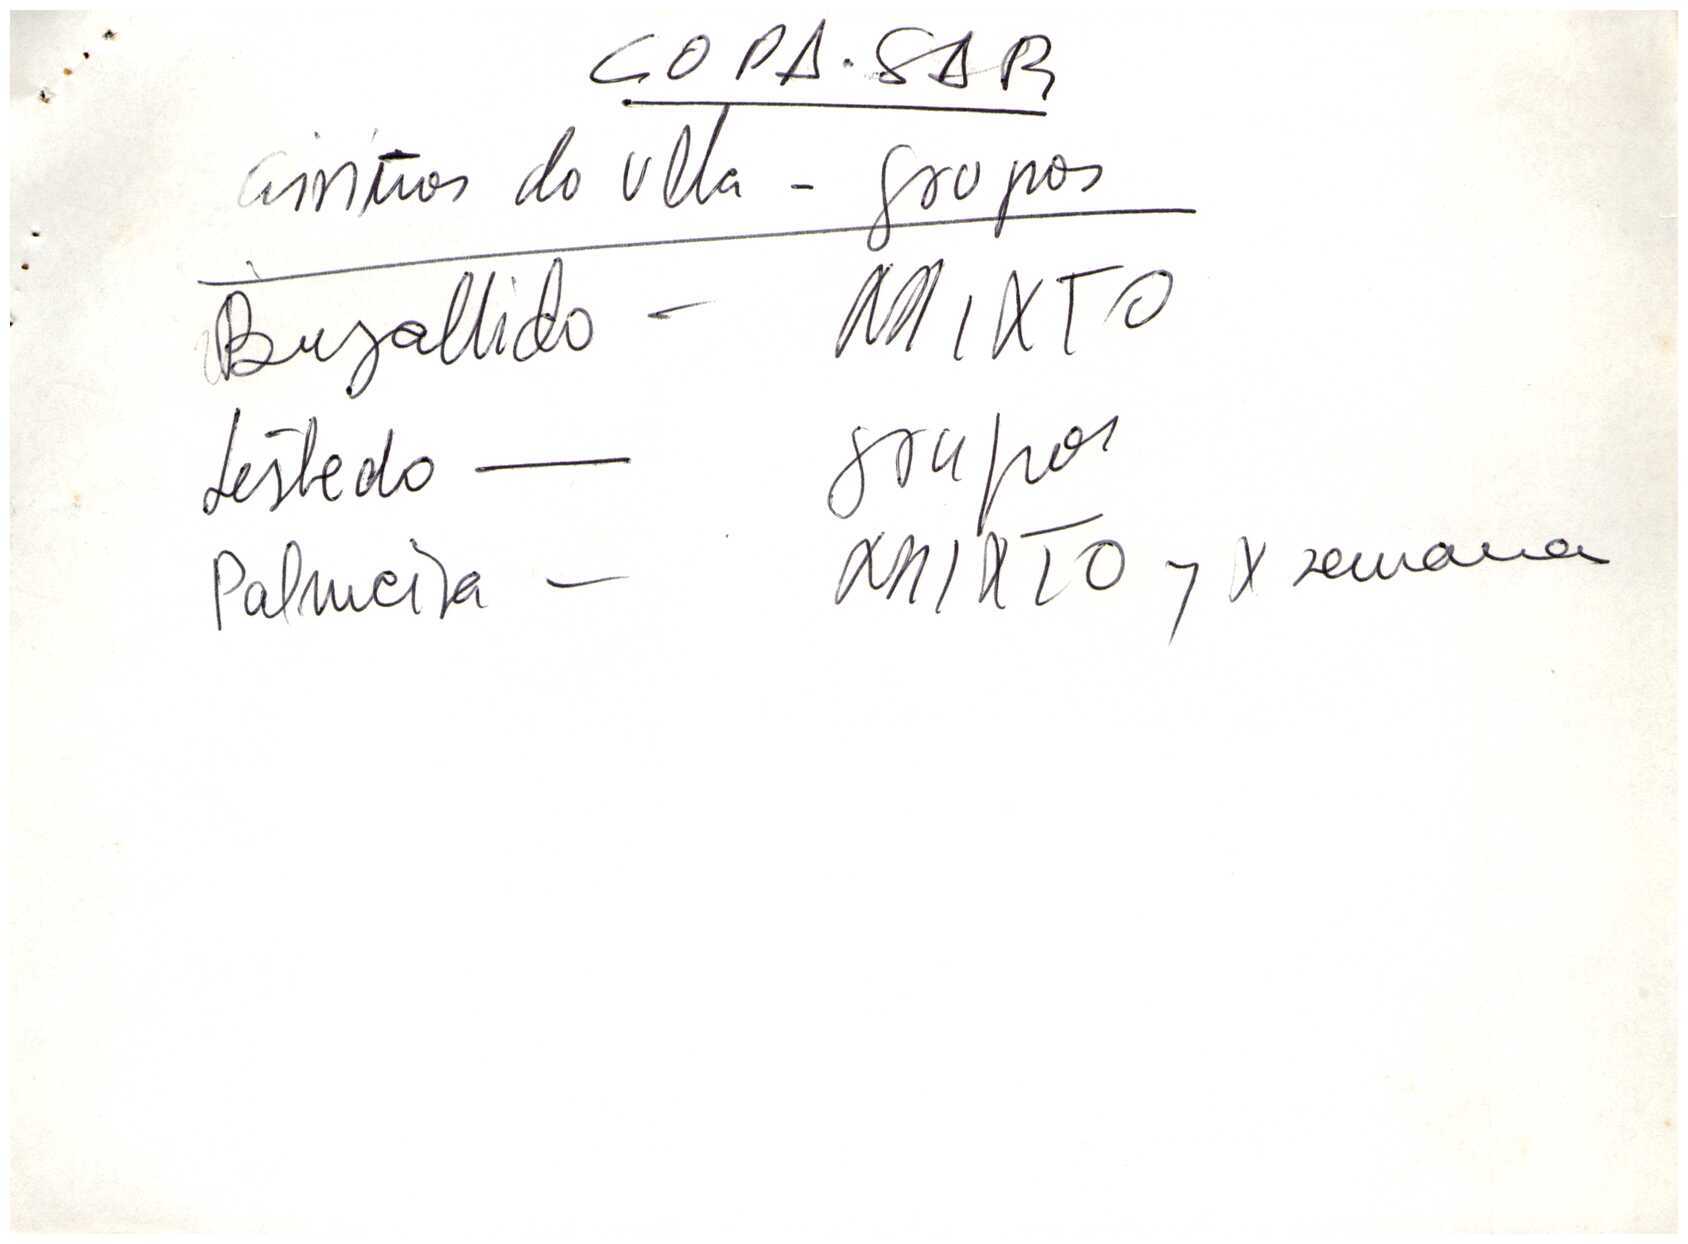 COPA.SAR
do villa - grupos
Buzallido - MIXTO
Lestedo — grupos
Palmeira - MIXTO y X semana